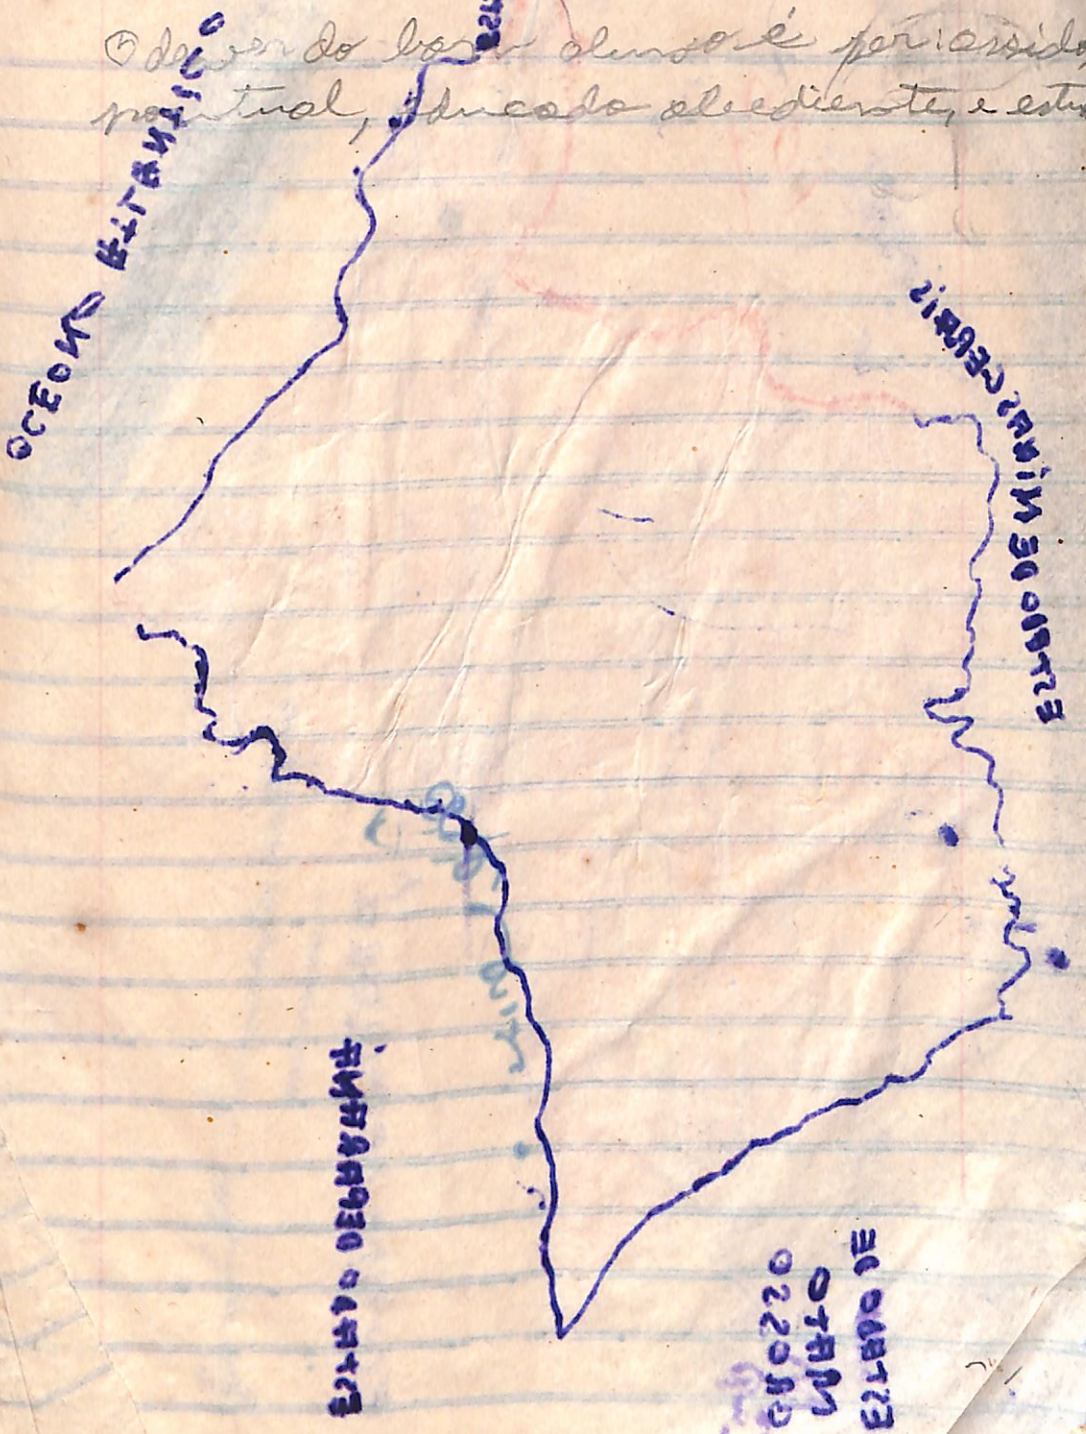 O dever do bom aluno é ser: assido
pontual, educado obediente, e estu
OCEONO ATLANTICO
ESTADO DE MINAS GERAIS
ESTADO DE PARANA
ESTADO DE
MATO
GROSSO